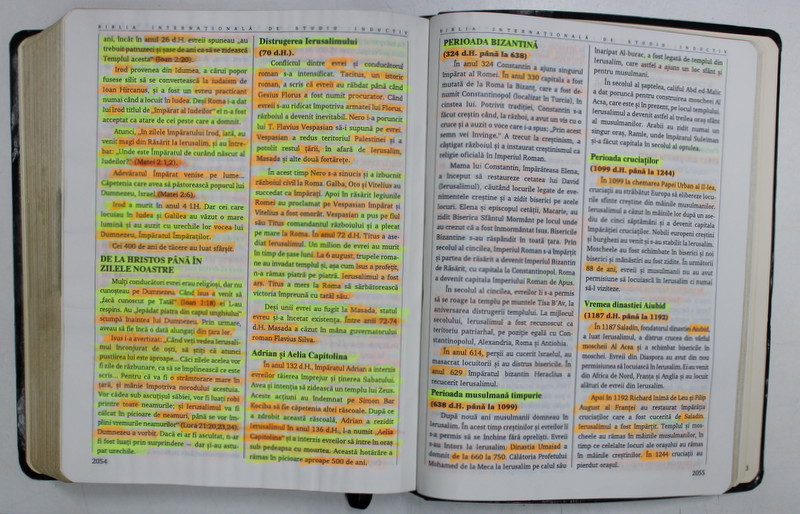 BIBLIA INTERNAȚIONALĂ DE STUDIU INDUCTIV
ani, încât în anul 26 d.H. evreii spuneau „au
trebuit patruzeci și șase de ani ca să se zidească
Templul acesta” (Ioan 2:20).
Irod provenea din Idumea, a cărui popor
fusese silit să se convertească la iudaism de
Ioan Hircanus, și a fost un evreu practicant
numai când a locuit în Iudea. Deși Roma i-a dat
lui Irod titlul de „Împărat al Iudeilor” el n-a fost
acceptat ca atare de cei peste care a domnit.
Atunci, „în zilele împăratului Irod, iată, au
venit magi din Răsărit la Ierusalim, și au între-
bat: „Unde este Împăratul de curând născut al
Iudeilor?” (Matei 2:1,2).
Adevăratul Împărat venise pe lume...
Căpetenia care avea să păstorească poporul lui
Dumnezeu, Israel. (Matei 2:6).
Irod a murit în anul 4 î.H. Dar cei care
locuiau în Iudea și Galilea au văzut o mare
lumină și au auzit cu urechile lor vocea lui
Dumnezeu, Împăratul Împăraților.
Cei 400 de ani de tăcere au luat sfârșit.
DE LA HRISTOS PÂNĂ ÎN
ZILELE NOASTRE
Mulți conducători evrei erau religioși, dar nu
cunoșteau pe Dumnezeu. Când Isus a venit să
„facă cunoscut pe Tatăl” (Ioan 1:18) ei L-au
respins. Au „lepădat piatra din capul unghiului”
scumpă înaintea lui Dumnezeu. Prin urmare,
aveau să fie încă o dată alungați din țara lor.
Isus i-a avertizat: „Când veți vedea Ierusali-
mul înconjurat de oști, să știți că atunci
pustiirea lui este aproape... Căci zilele acelea vor
fi zile de răzbunare, ca să se împlinească ce este
scris... Pentru că va fi o strâmtorare mare în
țară, și mânie împotriva norodului acestuia.
Vor cădea sub ascuțișul săbiei, vor fi luați robi
printre toate neamurile; și Ierusalimul va fi
călcat în picioare de neamuri, până se vor îm-
plini vremurile neamurilor” (Luca 21:20,23,24).
Dumnezeu a vorbit. Dacă ei ar fi ascultat, n-ar
fi fost luați prin surprindere — dar și-au astu-
pat urechile.
2054
Distrugerea Ierusalimului
(70 d.H.).
Conflictul dintre evrei și conducătorul
roman s-a intensificat. Tacitus, un istoric
roman, a scris că evreii au răbdat până când
Gesius Florus a fost numit procurator. Când
evreii s-au ridicat împotriva armatei lui Florus,
războiul a devenit inevitabil. Nero i-a poruncit
lui T. Flavius Vespasian să-i supună pe evrei.
Vespasian a redus teritoriul Palestinei și a
potolit restul țării, în afară de Ierusalim,
Masada și alte două fortărețe.
În acest timp Nero s-a sinucis și a izbucnit
războiul civil la Roma. Galba, Oto și Vitelius au
succedat ca împărați. Apoi în răsărit legiunile
Romei au proclamat pe Vespasian împărat și
Vitelius a fost omorât. Vespasian a pus pe fiul
său Titus comandantul războiului și a plecat
pe mare la Roma. În anul 72 d.H. Titus a ase-
diat Ierusalimul. Un milion de evrei au murit
în timp de șase luni. La 6 august, trupele roma-
ne au invadat templul și, așa cum Isus a profețit,
n-a rămas piatră pe piatră. Ierusalimul a fost
ars. Titus a mers la Roma să sărbătorească
victoria împreună cu tatăl său.
Deși unii evrei au fugit la Masada, statul
evreu și-a încetat existența. Între anii 72-74
d.H. Masada a căzut în mâna guvernatorului
roman Flavius Silva.
Adrian și Aelia Capitolina
În anul 132 d.H., împăratul Adrian a interzis
evreilor tăierea împrejur și ținerea Sabatului.
Avea și intenția să zidească un templu lui Zeus.
Aceste acțiuni au îndemnat pe Simon Bar
Kociba să fie căpetenia altei răscoale. După ce
a zdrobit această răscoală, Adrian a rezidit
Ierusalimul în anul 136 d.H., l-a numit „Aelia
Capitolina” și a interzis evreilor să intre în oraș
sub pedeapsa cu moartea. Această hotărâre a
rămas în picioare aproape 500 de ani.
BIBLIA INTERNAȚIONALĂ DE STUDIU INDUCTIV
PERIOADA BIZANTINĂ
(324 d.H. până la 638)
În anul 324 Constantin a ajuns singurul
împărat al Romei. În anul 330 capitala a fost
mutată de la Roma la Bizanț, care a fost de-
numit Constantinopol (localizat în Turcia), în
cinstea lui. Potrivit tradiției, Constantin s-a
făcut creștin când, la război, a avut un vis cu o
cruce și a auzit o voce care i-a spus: „Prin acest
semn vei învinge.” A trecut la creștinism, a
câștigat războiul și a instaurat creștinismul ca
religie oficială în Imperiul Roman.
Mama lui Constantin, împărăteasa Elena,
a început să restaureze cetatea lui David
(Ierusalimul), căutând locurile legate de eve-
nimentele creștine și a zidit biserici pe acele
locuri. Elena și episcopul cetății, Macarie, au
zidit Biserica Sfântul Mormânt pe locul unde
au crezut că a fost înmormântat Isus. Bisericile
Bizantine s-au răspândit în toată țara. Prin
secolul al cincilea, Imperiul Roman s-a împărțit
și partea de răsărit a devenit Imperiul Bizantin
de Răsărit, cu capitala la Constantinopol. Roma
a devenit capitala Imperiului Roman de Apus.
În secolul al cincilea, evreilor li s-a permis
să se roage la templu pe muntele Tisa B'Av, la
aniversarea distrugerii templului. La mijlocul
secolului, Ierusalimul a fost recunoscut ca
teritoriu patriarhal, pe poziție egală cu Con-
stantinopolul, Alexandria, Roma și Antiohia.
În anul 614, perșii au cucerit Israelul, au
masacrat locuitorii și au distrus bisericile. În
anul 629 împăratul bizantin Heraclius a
recucerit Ierusalimul.
Perioada musulmană timpurie
(638 d.H. până la 1099)
După nouă ani musulmanii domneau în
Ierusalim. În acest timp creștinilor și evreilor li
s-a permis să se închine fără opreliști. Evreii
s-au întors la Ierusalim. Dinastia Umaiad a
domnit de la 660 la 750. Călătoria Profetului
Mohamed de la Meca la Ierusalim pe calul său
înaripat Al-burac, a fost legată de templul din
Ierusalim, care astfel a ajuns un loc sfânt și
pentru musulmani.
În secolul al șaptelea, califul Abd el-Malic
a dat poruncă pentru construirea moscheei Al
Acsa, care este și în prezent, pe locul templului.
Ierusalimul a devenit astfel al treilea oraș sfânt
al musulmanilor. Arabii au zidit numai un
singur oraș, Ramle, unde împăratul Suleiman
și-a făcut capitala în secolul al optulea.
Perioada cruciaților
(1099 d.H. până la 1244)
În 1099 la chemarea Papei Urban al II-lea,
cruciații au străbătut Europa să elibereze locu-
rile sfinte creștine din mâinile musulmanilor.
Ierusalimul a căzut în mâinile lor după un ase-
diu de cinci săptămâni și a devenit capitala
împărăției cruciaților. Nobili europeni creștini
și burghezi au venit și s-au stabilit la Ierusalim.
Moscheele au fost schimbate în biserici și noi
biserici și mânăstiri au fost zidite. În următorii
88 de ani, evreii și musulmanii nu au avut
permisiune să locuiască în Ierusalim ci numai
să-l viziteze.
Vremea dinastiei Aiubid
(1187 d.H. până la 1192)
În 1187 Saladin, fondatorul dinastiei Aiubid,
a luat Ierusalimul, a distrus crucea din vârful
moscheii Al Acsa și a schimbat bisericile în
moschei. Evreii din Diaspora au avut din nou
permisiunea să locuiască în Ierusalim. Ei au venit
din Africa de Nord, Franța și Anglia și au locuit
alături de evreii din Ierusalim.
Apoi în 1192 Richard Inimă de Leu și Filip
August al Franței au restaurat împărăția
cruciaților care a fost cucerită de Saladin.
Ierusalimul a fost împărțit. Templul și mos-
cheele au rămas în mâinile musulmanilor, în
timp ce celelalte locuri ale orașului au rămas
în mâinile creștinilor. În 1244 cruciații au
pierdut orașul.
2055